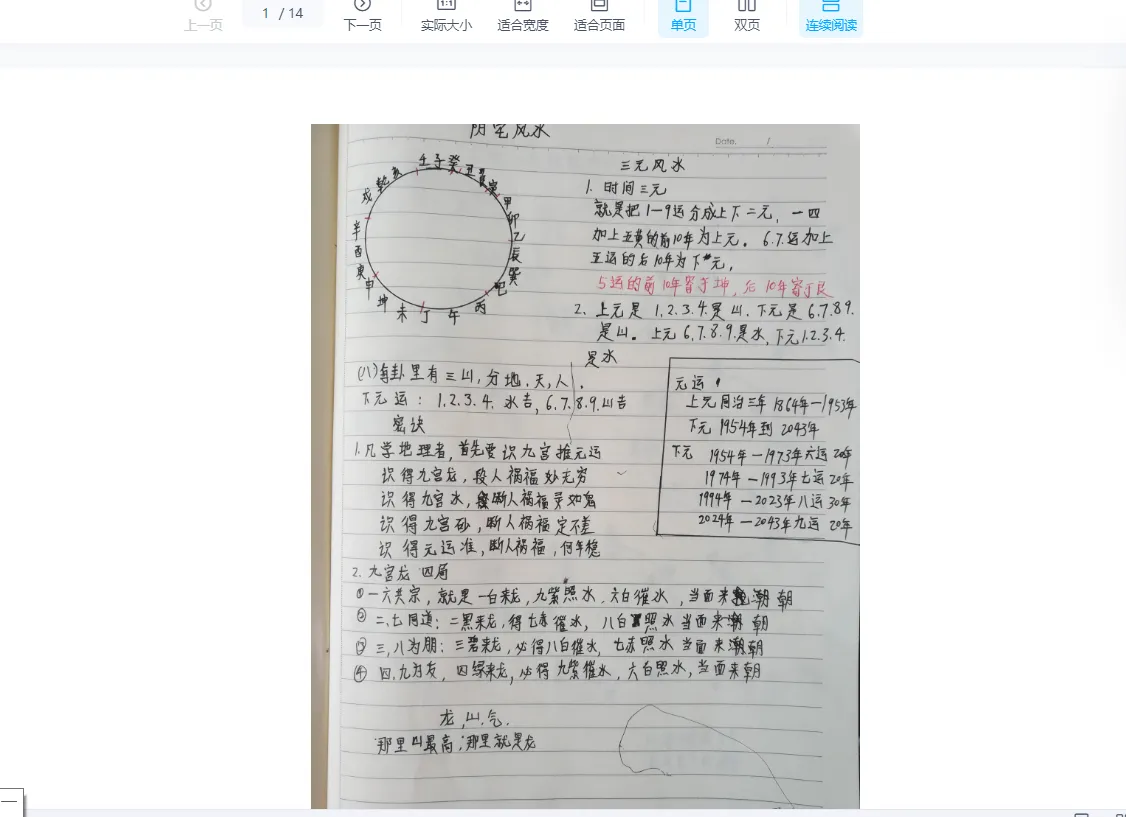 上一页
1 / 14
下一页
实际大小
适合宽度
适合页面
单页
双页
连续阅读
阴宅风水
Date. /
壬子癸丑艮寅甲卯乙辰巽巳丙午丁未坤申庚酉辛戌乾亥
三元风水
1. 时间三元
就是把1—9运分成上下二元,一四
加上五黄的前10年为上元。6.7.运加上
五运的后10年为下元,
5运的前10年寄于坤,后10年寄于艮
2. 上元是 1.2.3.4.是山.下元是 6.7.8.9.
是山。上元 6.7.8.9.是水,下元1.2.3.4.
是水
(八)每卦里有三山,分地.天,人.
下元运:1.2.3.4. 水吉,6.7.8.9.山吉
密诀
1.凡学地理者,首先要识九宫推元运
识得九宫龙,段人祸福妙无穷
识得九宫水,断人祸福灵如鬼
识得九宫砂,断人祸福定不差
识得元运准,断人祸福,何年稳
元运
上元同治三年 1864年—1953年
下元 1954年到 2043年
下元 1954年—1973年六运 20年
1974年—1993年七运 20年
1994年—2023年八运 30年
2024年—2043年九运 20年
2. 九宫龙 四局
① 一六共宗,就是一白来龙,九紫照水.六白催水,当面来朝
② 二、七同道:二黑来龙,得七赤催水,八白照水当面来朝
③ 三,八为朋:三碧来龙,必得八白催水,七赤照水当面来朝
④ 四.九为友,四绿来龙,必得九紫催水,六白照水,当面来朝
龙,山.气.
那里山最高;那里就是龙